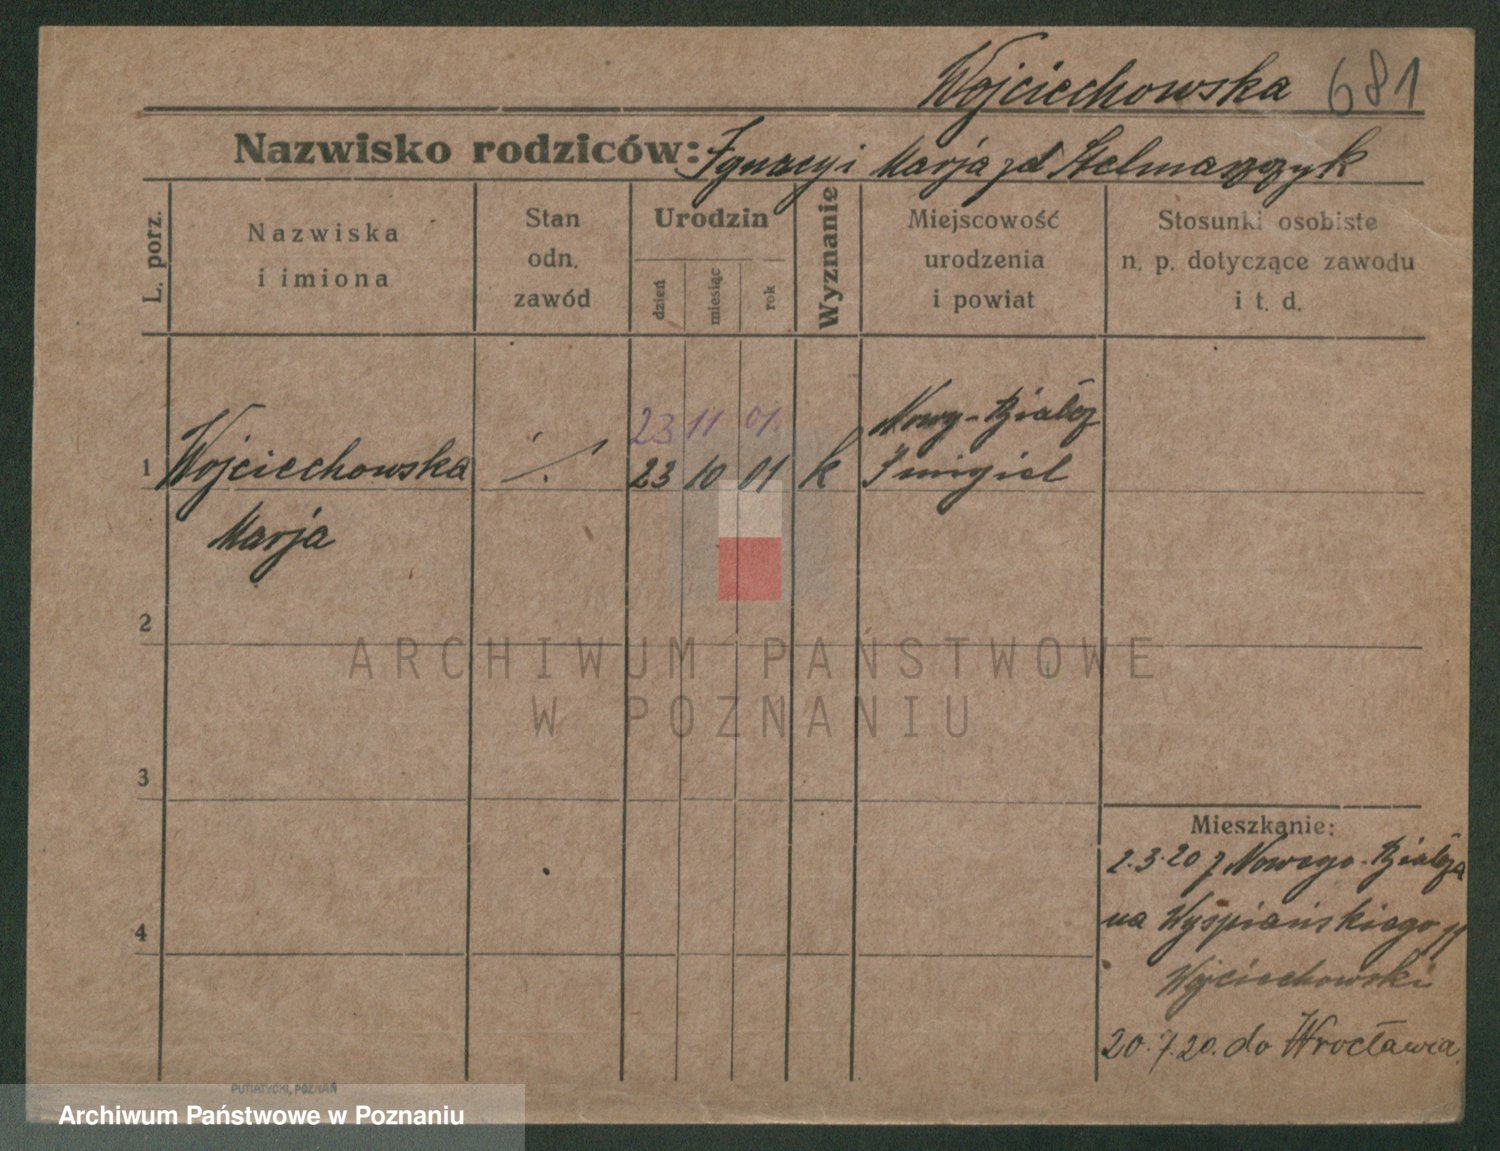 Wojciechowska 681
Nazwisko rodziców: Ignacy i Marja zd Stelmaszczyk
L. porz.
Nazwiska
i imiona
Stan
odn.
zawód
Urodzin
dzień
miesiąc
rok
Wyznanie
Miejscowość
urodzenia
i powiat
Stosunki osobiste
n. p. dotyczące zawodu
i t. d.
23 11 01.
Nowy-Białcz
1 Wojciechowska ./. 23 10 01 k Śmigiel
Marja
2
3
4
Mieszkanie:
2.3.20 z Nowego-Białcza
na Wyspiańskiego
Wojciechowski
20.7.20. do Wrocławia.
PUTIATYCKI, POZNAŃ
ARCHIWUM PAŃSTWOWE
W POZNANIU
Archiwum Państwowe w Poznaniu